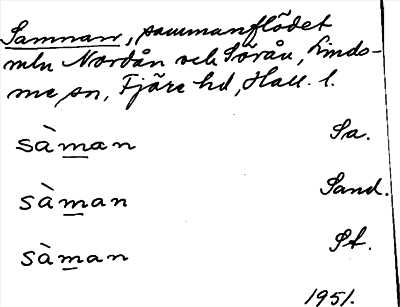 Samman, sammanflödet
mln Nordån och Söråu, Lindo-
me sn, Fjäre hd, Hall. l.
sàman Sa.
sàman Sand.
sàman St.
1951.